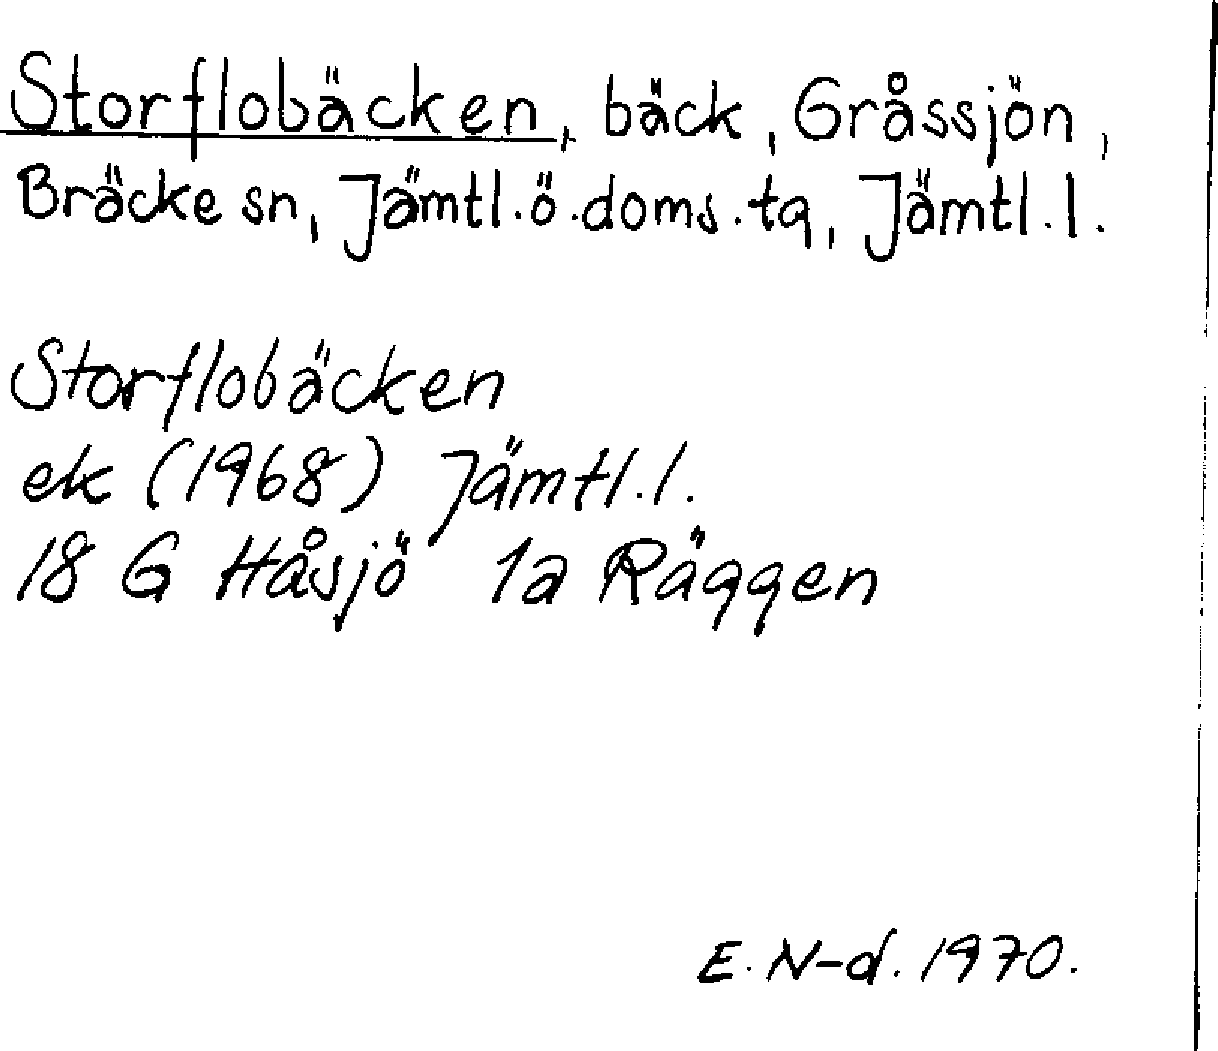 Storflobäcken, bäck, Gråssjön,
Bräcke sn, Jämtl.ö.doms.tg, Jämtl.l.
Storflobäcken
ek (1968) Jämtl.l.
18 G Håsjö 1a Räggen
E. N-d. 1970.